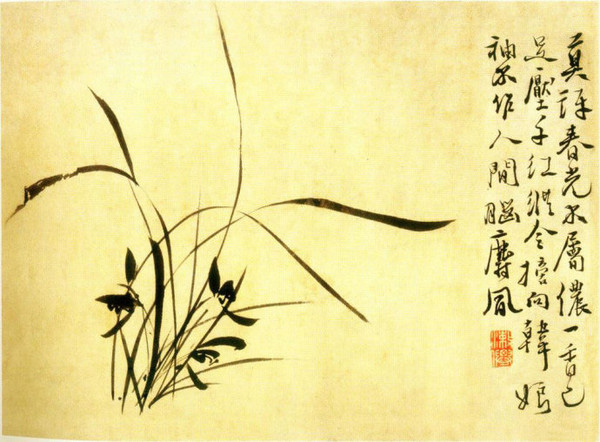 莫訝春光不屬儂一香已
足壓千紅縱令摘向韓娘
袖不作人間腦麝風